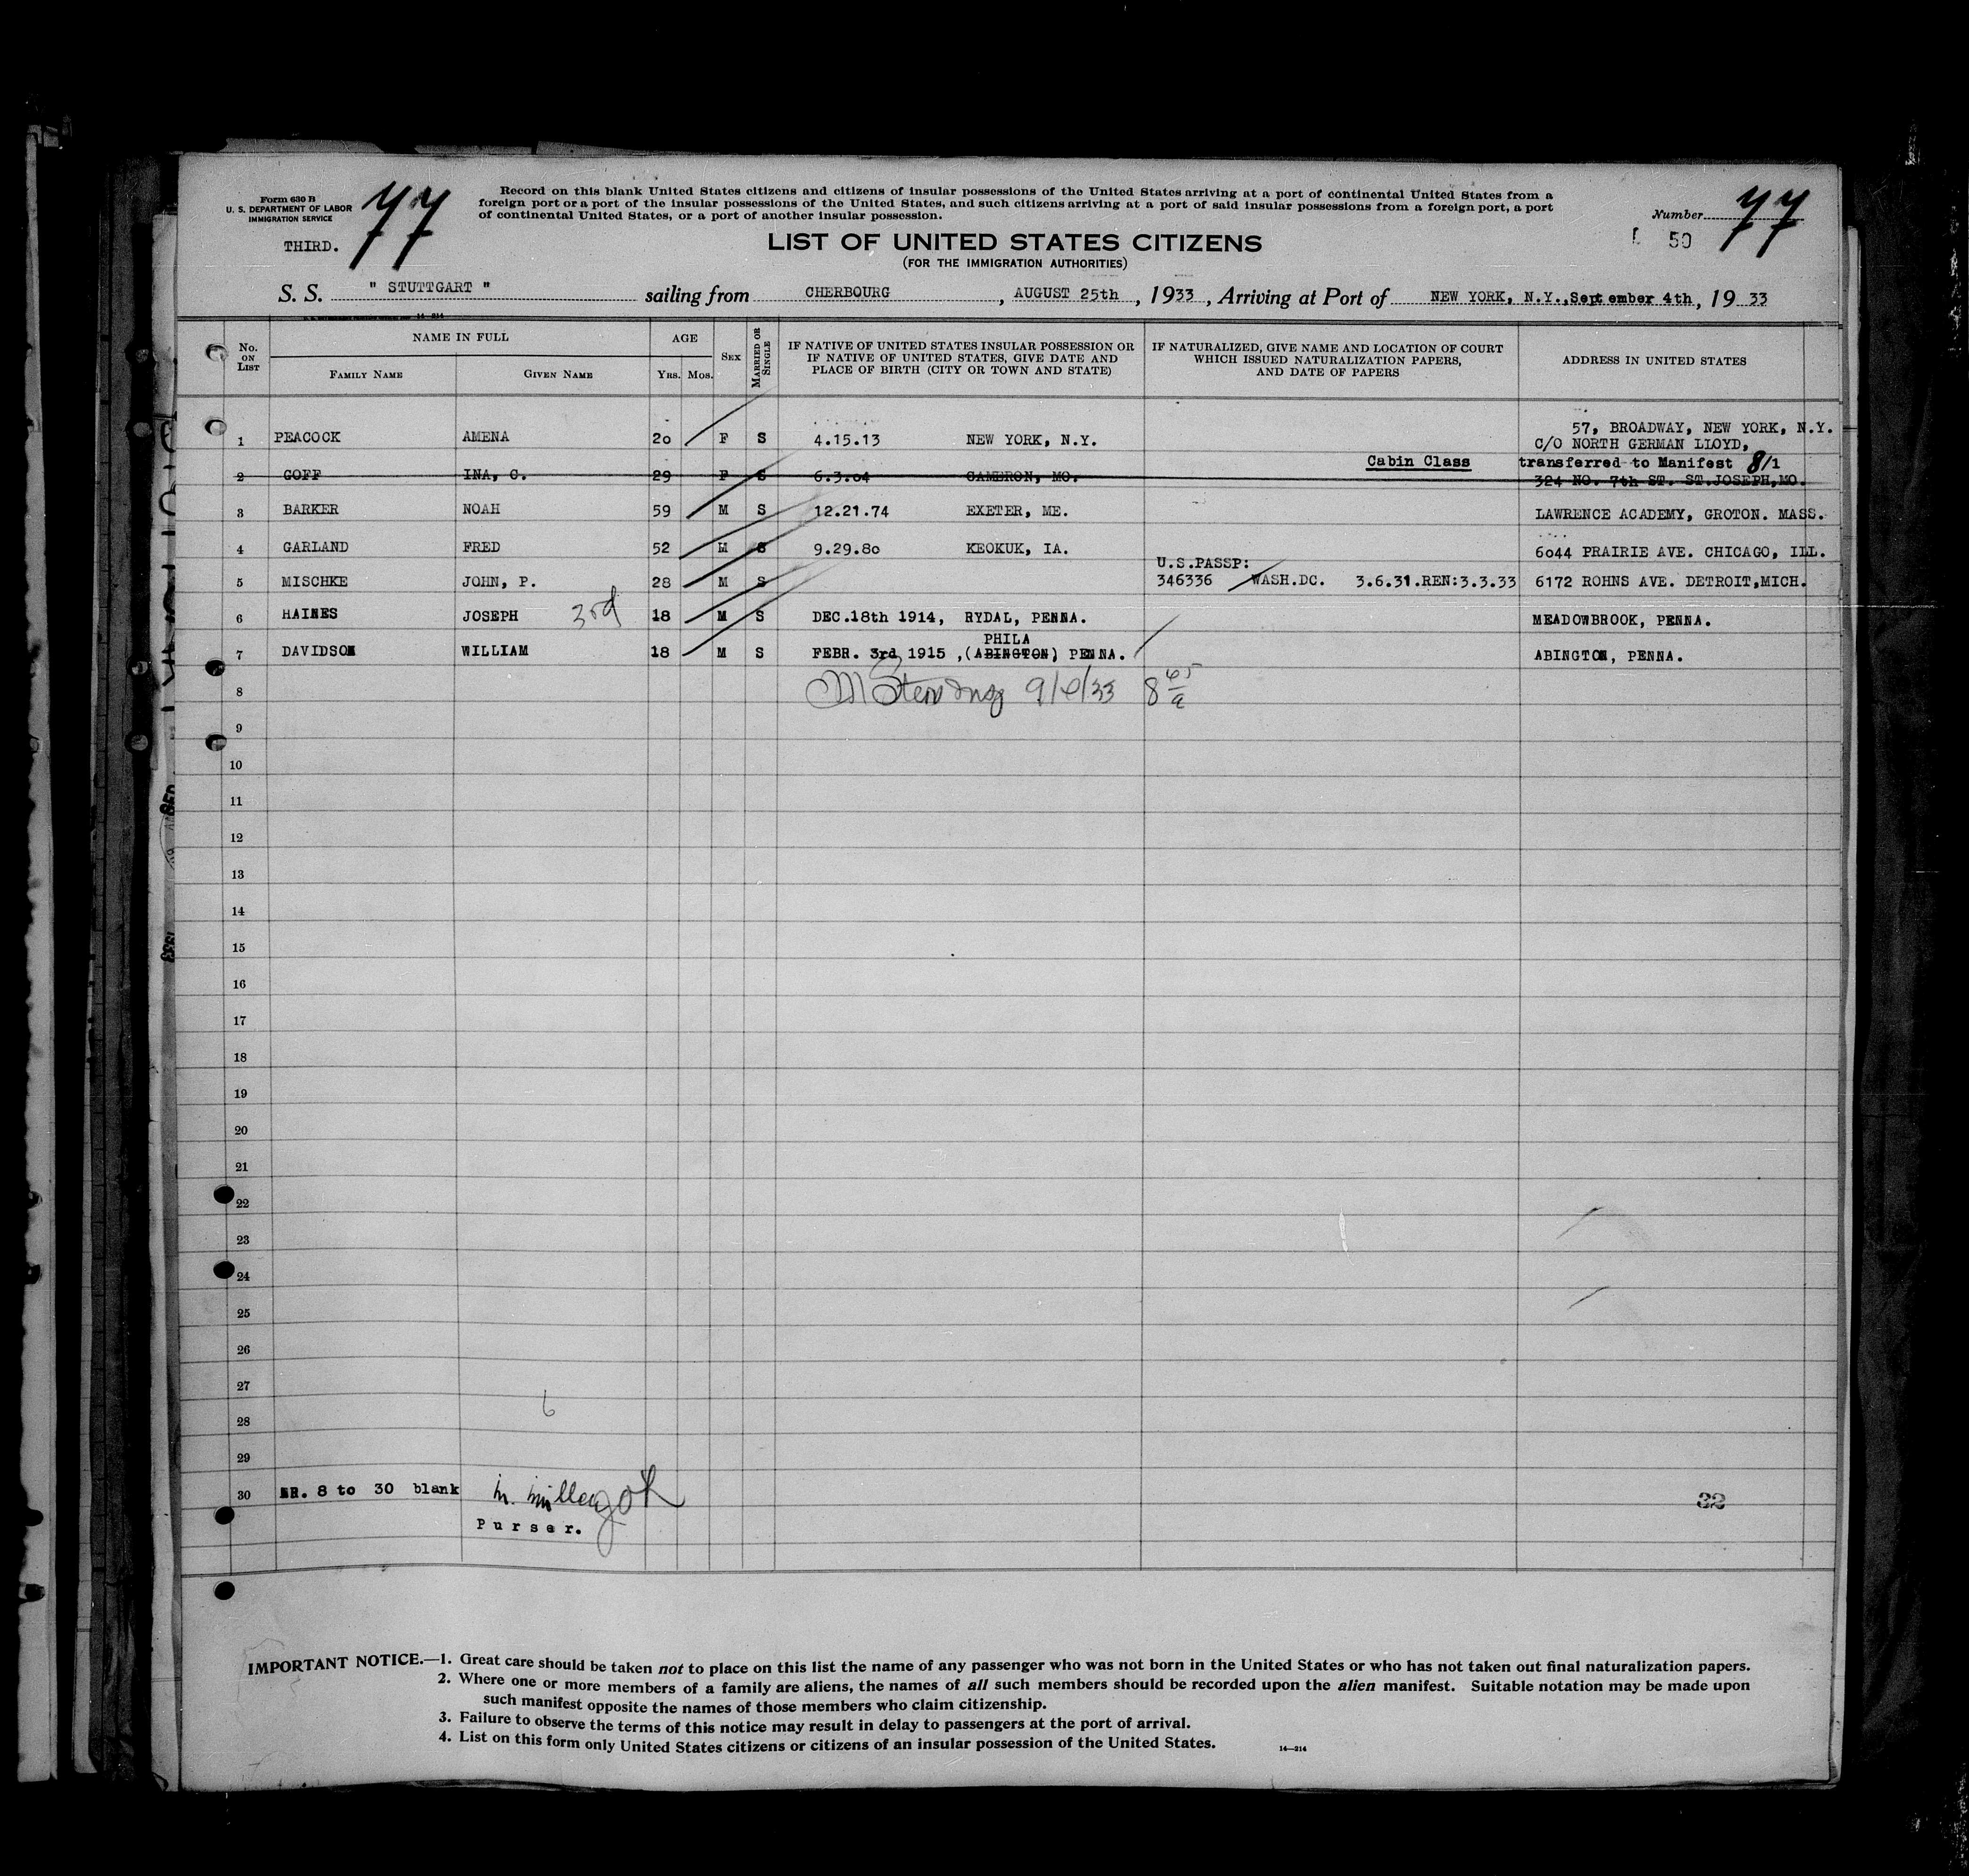 Form 630 B
U. S. DEPARTMENT OF LABOR
IMMIGRATION SERVICE
THIRD.
77
Record on this blank United States citizens and citizens of insular possessions of the United States arriving at a port of continental United States from a
foreign port or a port of the insular possessions of the United States, and such citizens arriving at a port of said insular possessions from a foreign port, a port
of continental United States, or a port of another insular possession.
Number 77
50
LIST OF UNITED STATES CITIZENS
(FOR THE IMMIGRATION AUTHORITIES)
S. S. " STUTTGART " sailing from CHERBOURG, AUGUST 25th, 1933, Arriving at Port of NEW YORK, N.Y., September 4th, 1933
No. ON LIST NAME IN FULL AGE SEX MARRIED OR SINGLE IF NATIVE OF UNITED STATES INSULAR POSSESSION OR IF NATIVE OF UNITED STATES, GIVE DATE AND PLACE OF BIRTH (CITY OR TOWN AND STATE) IF NATURALIZED, GIVE NAME AND LOCATION OF COURT WHICH ISSUED NATURALIZATION PAPERS, AND DATE OF PAPERS ADDRESS IN UNITED STATES
FAMILY NAME GIVEN NAME YRS. MOS.
57, BROADWAY, NEW YORK, N.Y.
1 PEACOCK AMENA 20 F S 4.15.13 NEW YORK, N.Y. C/O NORTH GERMAN LLOYD,
Cabin Class transferred to Manifest 8/1
2 GOFF INA, C. 29 F S 6.3.04 CAMERON, MO. 324 NO. 7th ST. ST.JOSEPH,MO.
3 BARKER NOAH 59 M S 12.21.74 EXETER, ME. LAWRENCE ACADEMY, GROTON. MASS.
4 GARLAND FRED 52 M S 9.29.80 KEOKUK, IA. 6044 PRAIRIE AVE. CHICAGO, ILL.
U.S.PASSP:
5 MISCHKE JOHN, P. 28 M S 346336 WASH.DC. 3.6.31.REN:3.3.33 6172 ROHNS AVE. DETROIT,MICH.
6 HAINES JOSEPH 3rd 18 M S DEC.18th 1914, RYDAL, PENNA. MEADOWBROOK, PENNA.
PHILA
7 DAVIDSON WILLIAM 18 M S FEBR. 3rd 1915 ,(ABINGTON) PENNA. ABINGTON, PENNA.
8
9
10
11
12
13
14
15
16
17
18
19
20
21
22
23
24
25
26
27
6
28
29
30 NR. 8 to 30 blank
Purser.
32
IMPORTANT NOTICE.—1. Great care should be taken not to place on this list the name of any passenger who was not born in the United States or who has not taken out final naturalization papers.
2. Where one or more members of a family are aliens, the names of all such members should be recorded upon the alien manifest. Suitable notation may be made upon
such manifest opposite the names of those members who claim citizenship.
3. Failure to observe the terms of this notice may result in delay to passengers at the port of arrival.
4. List on this form only United States citizens or citizens of an insular possession of the United States.
14—214